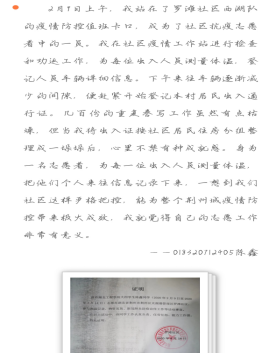 2月9日上午，我站在了罗滩社区西湖队
的疫情防控值班卡口，成为了社区抗疫志愿
者中的一员。我在社区疫情工作站进行检查
和劝返工作，为每一位出入人员测量体温，登
记人员车辆详细信息。下午来往车辆逐渐减
少的间隙，便赶紧开始登记本村居民出入通
行证。几百份的重复誊写工作虽然有点枯
燥，但当我将出入证按社区居民住房分组整
理成一摞摞后，心里不禁有种成就感。身为
一名志愿者，为每一位出入人员测量体温，
把他们个人来往信息记录下来，一想到我们
社区这样严格把控，能为整个荆州城疫情防
控带来极大成效，我就觉得自己的志愿工作
非常有意义。
——018320712905陈鑫
证明